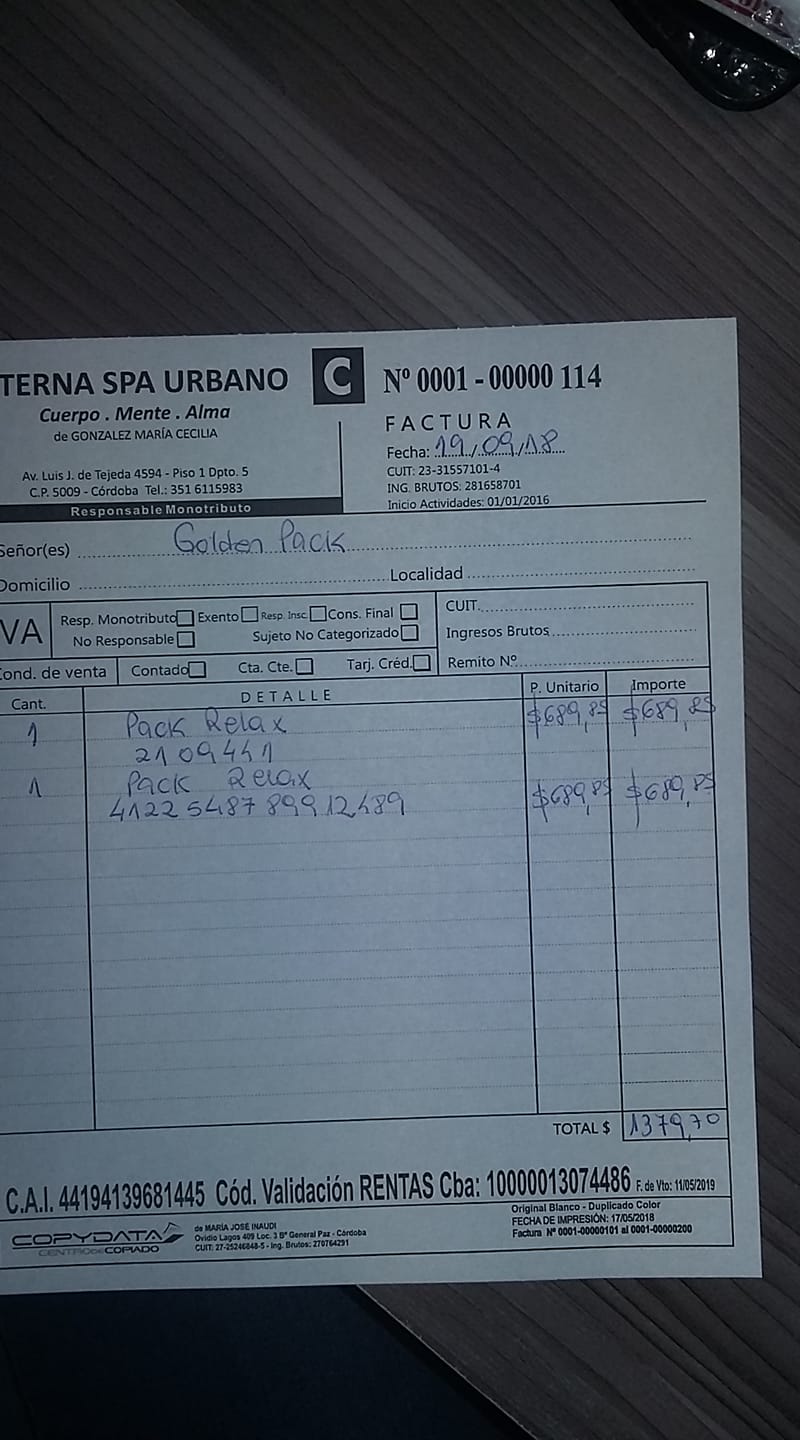 TERNA SPA URBANO
Cuerpo . Mente . Alma
de GONZALEZ MARÍA CECILIA
Av. Luis J. de Tejeda 4594 - Piso 1 Dpto. 5
C.P. 5009 - Córdoba Tel.: 351 6115983
Responsable Monotributo
C
Nº 0001 - 00000 114
FACTURA
Fecha: 19/09/18
CUIT: 23-31557101-4
ING. BRUTOS: 281658701
Inicio Actividades: 01/01/2016
Señor(es) Golden Pack
Domicilio Localidad
VA Resp. Monotributo Exento Resp. Insc. Cons. Final
No Responsable Sujeto No Categorizado
CUIT.
Ingresos Brutos
Remito Nº
Cond. de venta Contado Cta. Cte. Tarj. Créd.
Cant. DETALLE P. Unitario Importe
1 Pack Relax $689,85 $689,85
2109441
1 Pack Relax $689,85 $689,85
4122548789912489
TOTAL $ 1379,70
C.A.I. 44194139681445 Cód. Validación RENTAS Cba: 10000013074486 F. de Vto: 11/05/2019
COPYDATA
CENTRO DE COPIADO
de MARÍA JOSÉ INAUDI
Ovidio Lagos 409 Loc. 3 Bº General Paz - Córdoba
CUIT: 27-25246848-5 - Ing. Brutos: 270764291
Original Blanco - Duplicado Color
FECHA DE IMPRESIÓN: 17/05/2018
Factura Nº 0001-00000101 al 0001-00000200